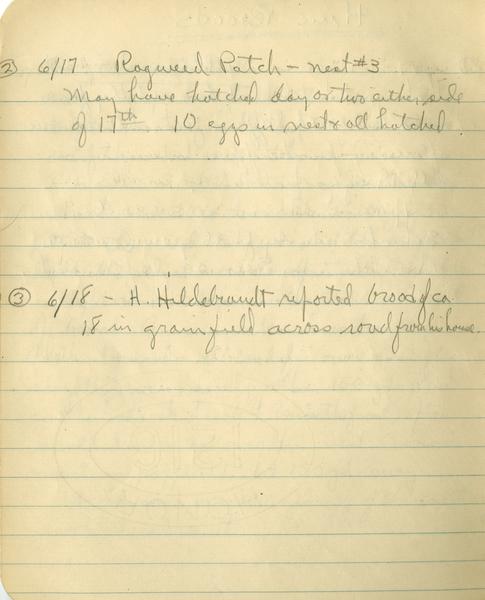 ② 6/17 Ragweed Patch - nest #3
May have hatched day or two either side
of 17th 10 eggs in nest & all hatched
③ 6/18 - H. Hildebrandt reported brood of ca
18 in grainfield across road from his house.